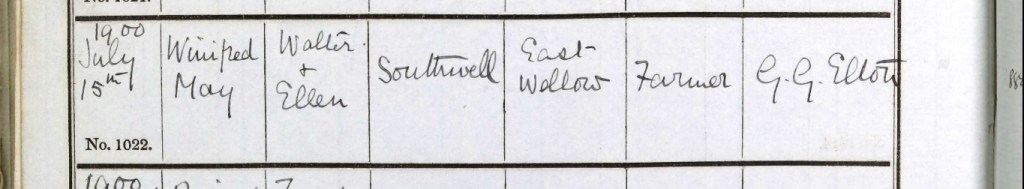 1900
July
15th
No. 1022.
Winifred
May
Walter
+
Ellen
Southwell
East
Wellow
Farmer
G. G. Elliott
1900